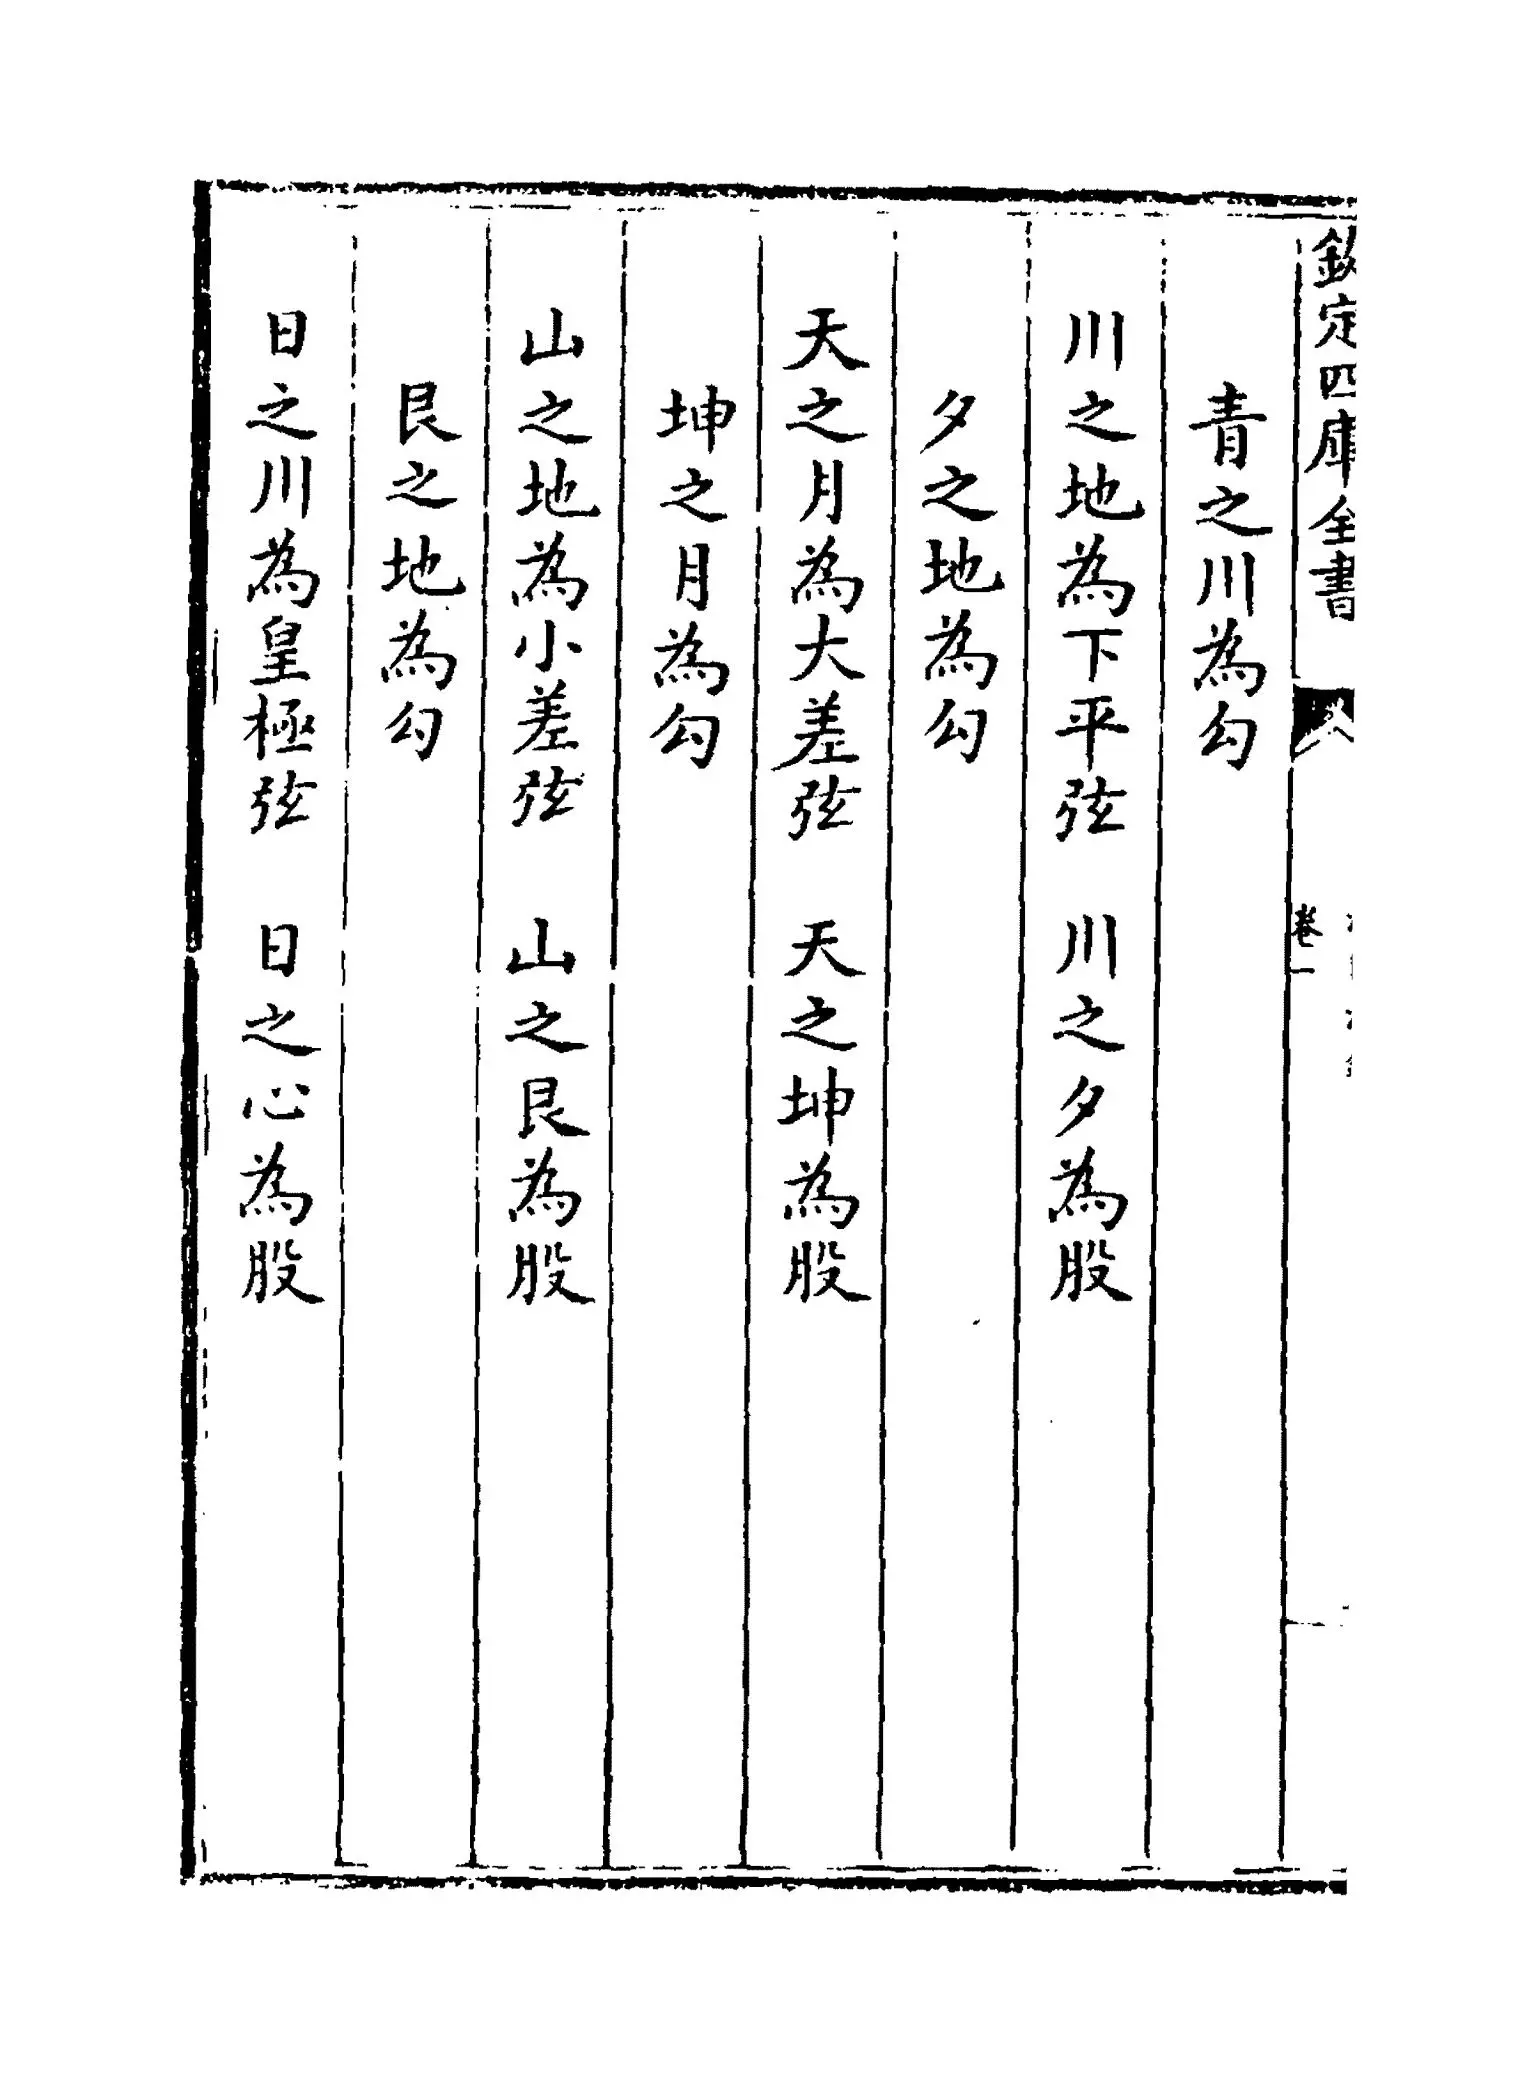 欽定四庫全書
卷一
青之川為勾
川之地為下平弦　川之夕為股
夕之地為勾
天之月為大差弦　天之坤為股
坤之月為勾
山之地為小差弦　山之艮為股
艮之地為勾
日之川為皇極弦　日之心為股